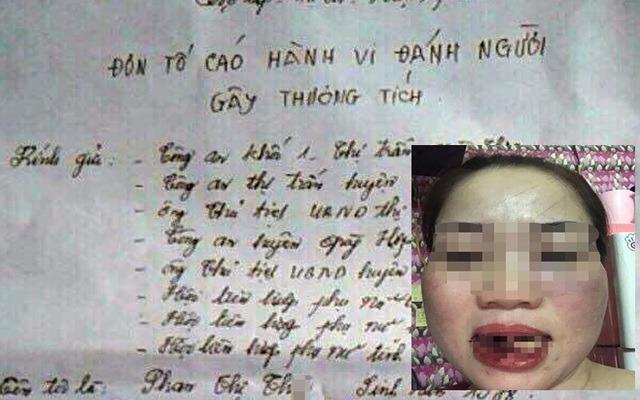 ĐƠN TỐ CÁO HÀNH VI ĐÁNH NGƯỜI
GÂY THƯƠNG TÍCH
Kính gửi: - Công an khối 1 - Thị trấn
- Công an thị trấn huyện
- Ông Chủ tịch UBND thị
- Công an huyện Quỳ Hợp
- Ông Chủ tịch UBND huyện
- Hội liên hiệp phụ nữ
- Hội liên hiệp phụ nữ
- Hội liên hiệp phụ nữ tỉnh
Tên tôi là: Phan Thị Th Sinh năm